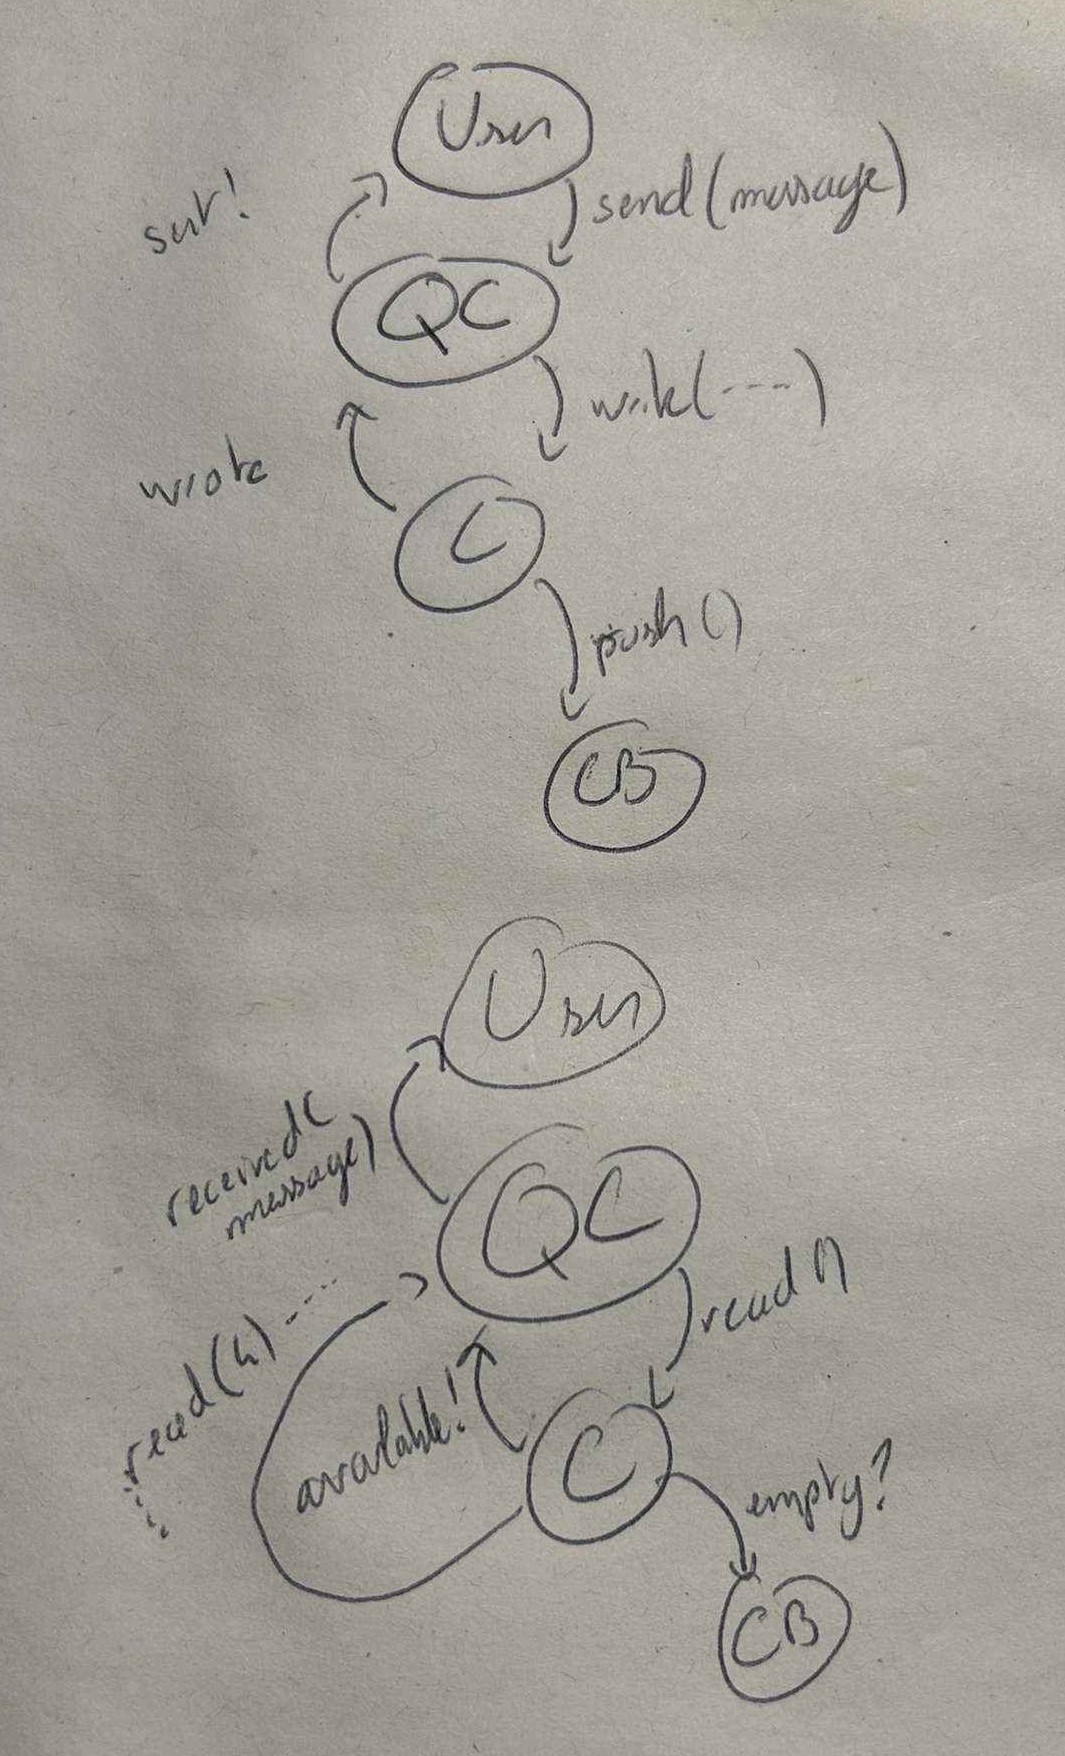 User
sent!
send(message)
QC
write(----)
wrote
C
push()
CB
User
received(
message)
QC
read()
read(h)
available!
C
empty?
CB